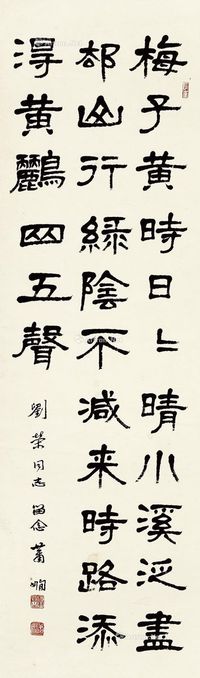 梅子黄時日〻晴小溪泛盡
却山行緑陰不減来時路添
淂黄鸝四五聲
劉榮同志留念 蕭嫻